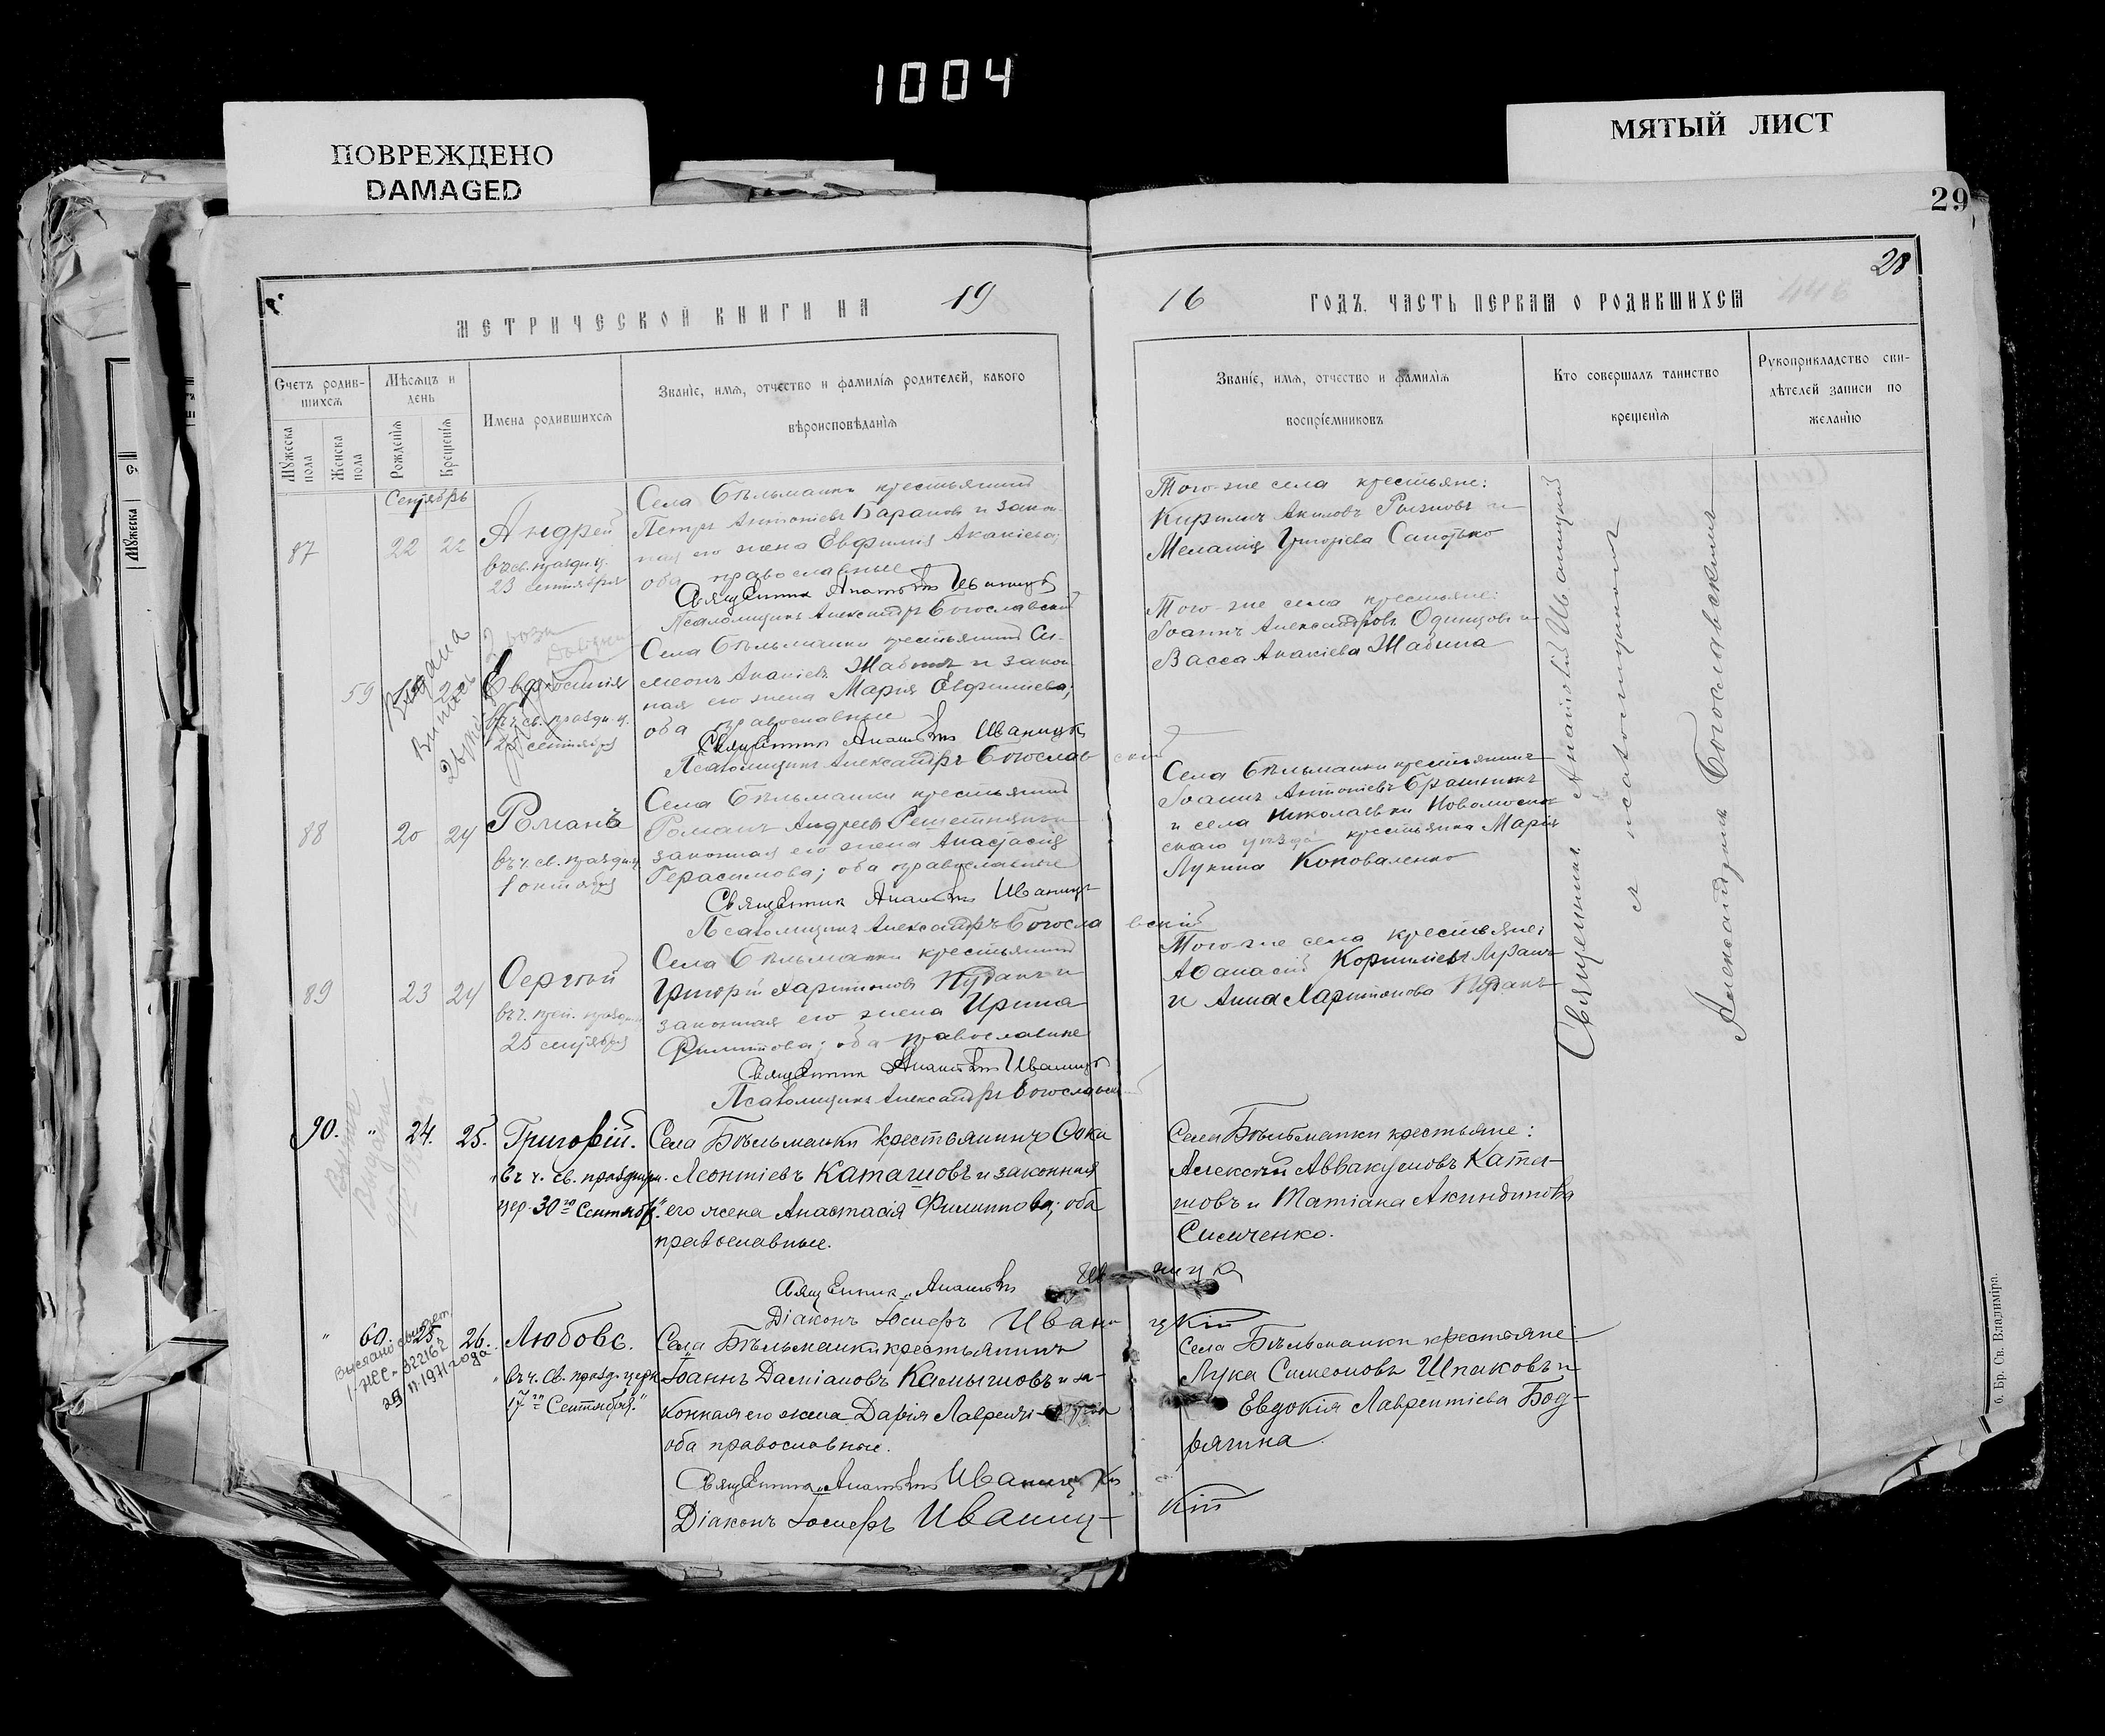 1004
ПОВРЕЖДЕНО
DAMAGED
МЯТЫЙ ЛИСТ
29
28
МЕТРИЧЕСКОЙ КНИГИ НА 1916 ГОДЪ. ЧАСТЬ ПЕРВАЯ О РОДИВШИХСЯ
Счетъ родив-
шихся
Мужеска
пола
Женска
пола
Мѣсяцъ и
день
Рожденія
Крещенія
Имена родившихся
Званіе, имя, отчество и фамилія родителей, какого
вѣроисповѣданія
Званіе, имя, отчество и фамилія
воспріемниковъ
Кто совершалъ таинство
крещенія
Рукоприкладство сви-
дѣтелей записи по
желанію
Мужеска
Сентябрь
87
22 22
Андрей
23 сентября
Села Бѣльманки крестьянинъ
Петръ Антоніевъ Барановъ и закон-
ная его жена Евфимія Акакіева;
оба православные
Священникъ Анатолій Иваницкій
Псаломщикъ Александръ Богославскій
Того-же села крестьяне:
Кириллъ Акиловъ
Меланія Григорієва Сапотько
59
Выдана
Евфросинія
въ ч. св. праздн. ц.
25 сентября
Села Бѣльманки крестьянинъ Си-
меонъ Акакіевъ Жабинъ и закон-
ная его жена Марія Евфиміева;
оба православные
Священникъ Анатолій Иваницкій
Псаломщикъ Александръ Богославскій
Того-же села крестьяне:
Іоаннъ Александровъ Одинцовъ и
Васса Акакіева Жабина
88
20 24
Романъ
въ ч. св. праздн. ц.
1 октября
Села Бѣльманки крестьянинъ
Романъ Андреевъ Решетнякъ и
законная его жена Анастасія
Герасимова; оба православные
Священникъ Анатолій Иваницкій
Псаломщикъ Александръ Богославскій
Села Бѣльманки крестьянинъ
Іоаннъ Антоніевъ Брашникъ
и села Николаевки Новомоско-
скаго уѣзда крестьянка Марія
Лукина Коноваленко
89
23 24
Сергѣй
25 сентября
Села Бѣльманки крестьянинъ
Григорій Харитоновъ и
законная его жена Ирина
Филиппова; оба православные
Священникъ Анатолій Иваницкій
Псаломщикъ Александръ Богославскій
Того-же села крестьяне:
Аѳанасій Корниліевъ
и Анна Харитонова
90. " 24. 25.
Выдана
Григорій.
"въ ч. св. праздну­ем.
цер. 30го Сентября."
Села Бѣльманки крестьянинъ Ѳока
Леонтіевъ Каташовъ и законная
его жена Анастасія Филиппова; оба
православные.
Священникъ Анатолій Иваницкій
Діаконъ Іосифъ Иваницкій
Села Бѣльманки крестьяне:
Алексѣй Аввакумовъ Ката-
шовъ и Татіана Акиндинова
Симченко.
" 60. 25 26.
Выслано свидет.
1-ЖС № 322162
29/II-1971 года
Любовь.
"въ ч. св. празд. церк.
17го Сентября."
Села Бѣльманки крестьянинъ
Іоаннъ Даміановъ Камышовъ и за-
конная его жена Дарія Лаврентіева
оба православные.
Священникъ Анатолій Иваницкій
Діаконъ Іосифъ Иваницкій
Села Бѣльманки крестьяне:
Лука Симеоновъ Шпаковъ и
Евдокія Лаврентіева Бод-
рягина.
Священникъ Анатолій Иваницкій
и псаломщикъ
Александръ Богославскій
б. Бр. Св. Владиміра.